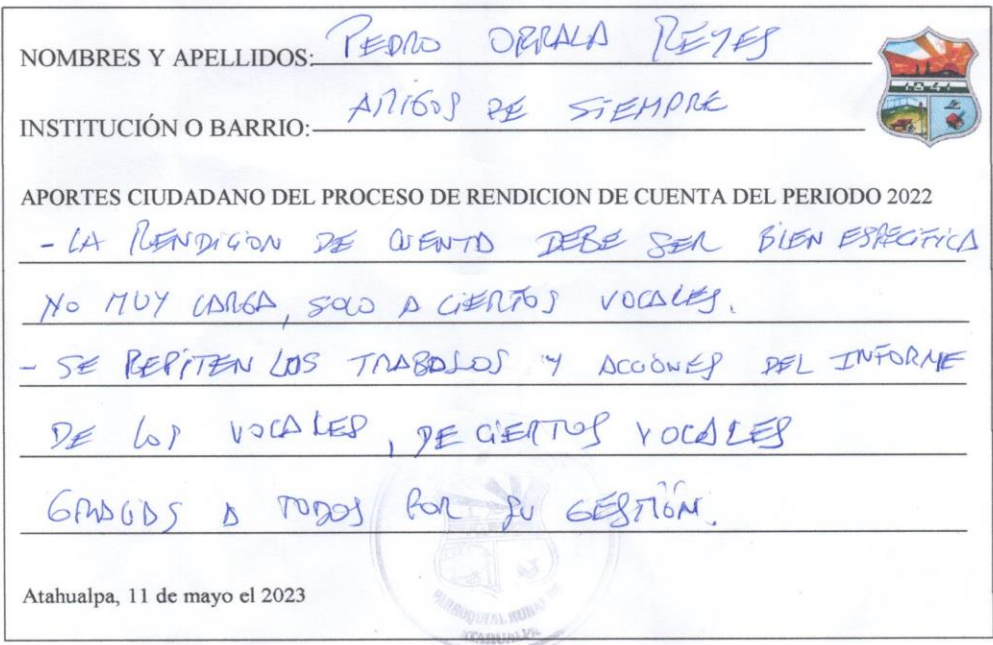 NOMBRES Y APELLIDOS: PEDRO ORRALA REYES
INSTITUCIÓN O BARRIO: AMIGOS DE SIEMPRE
1941
APORTES CIUDADANO DEL PROCESO DE RENDICION DE CUENTA DEL PERIODO 2022
- LA RENDICION DE CUENTA DEBE SER BIEN ESPECIFICA
NO MUY LARGA, SOLO A CIERTOS VOCALES.
- SE REPITEN LOS TRABAJOS Y ACCIONES DEL INFORME
DE LOS VOCALES, DE CIERTOS VOCALES
GRACIAS A TODOS POR SU GESTIÓN.
Atahualpa, 11 de mayo el 2023
PARROQUIAL RURAL DE
ATAHUALPA